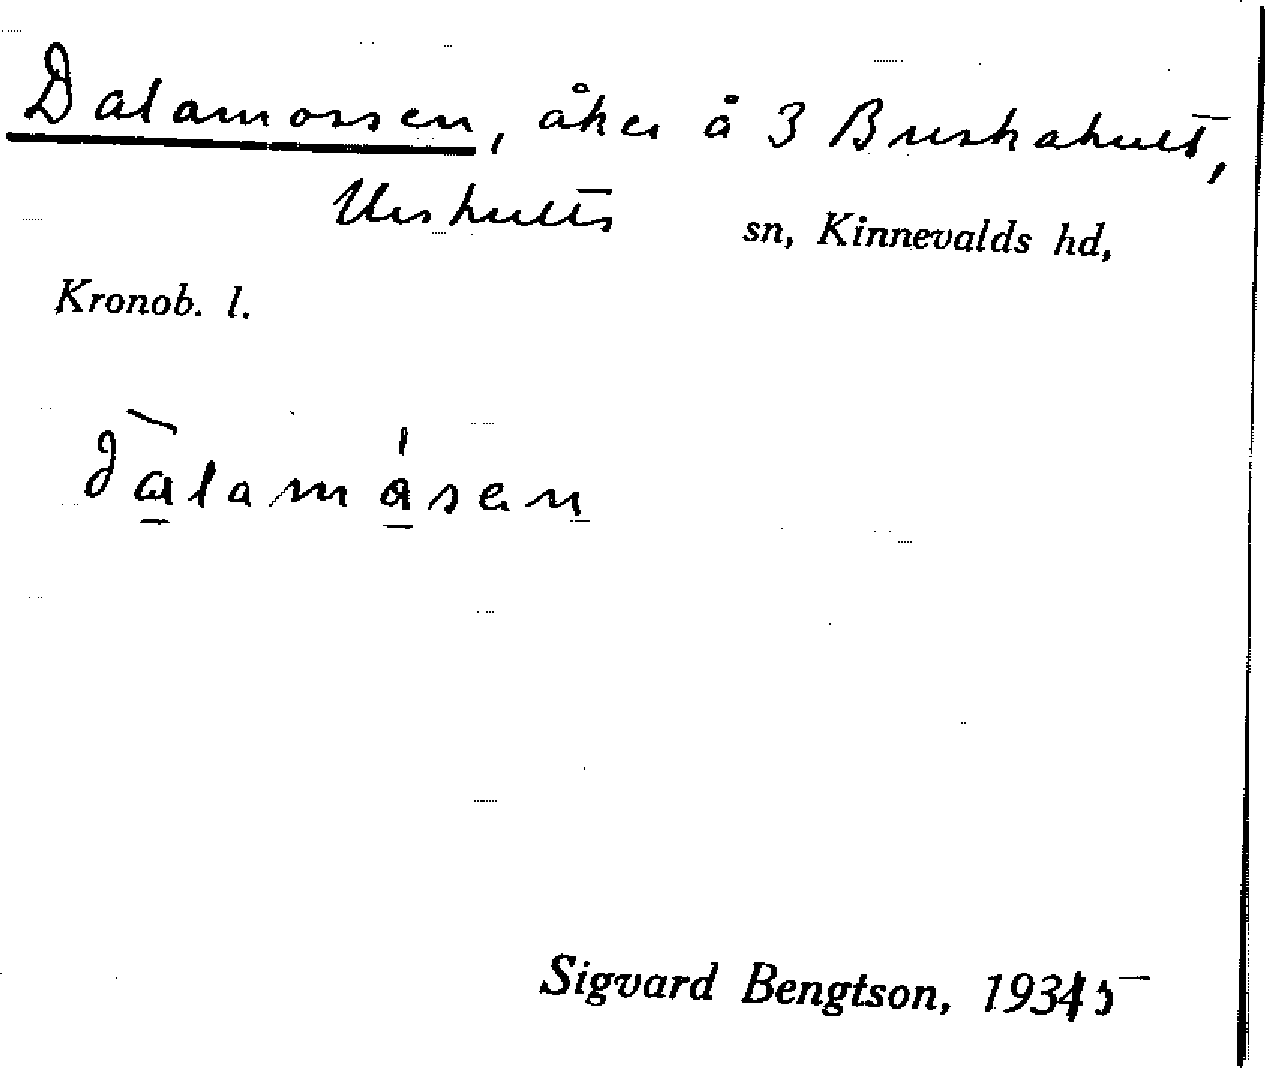 Dalamossen, åker å 3 Buskahult,
Urshults sn, Kinnevalds hd,
Kronob. l.
dàlamåsen
Sigvard Bengtson, 1935